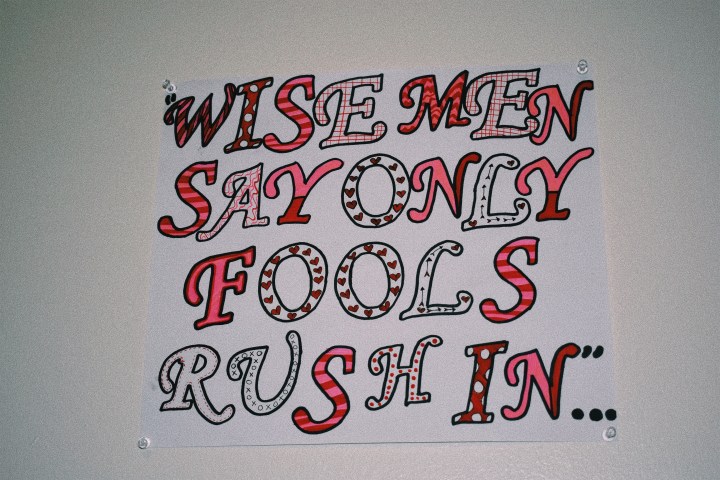 "WISE MEN
SAY ONLY
FOOLS
RUSH IN"...